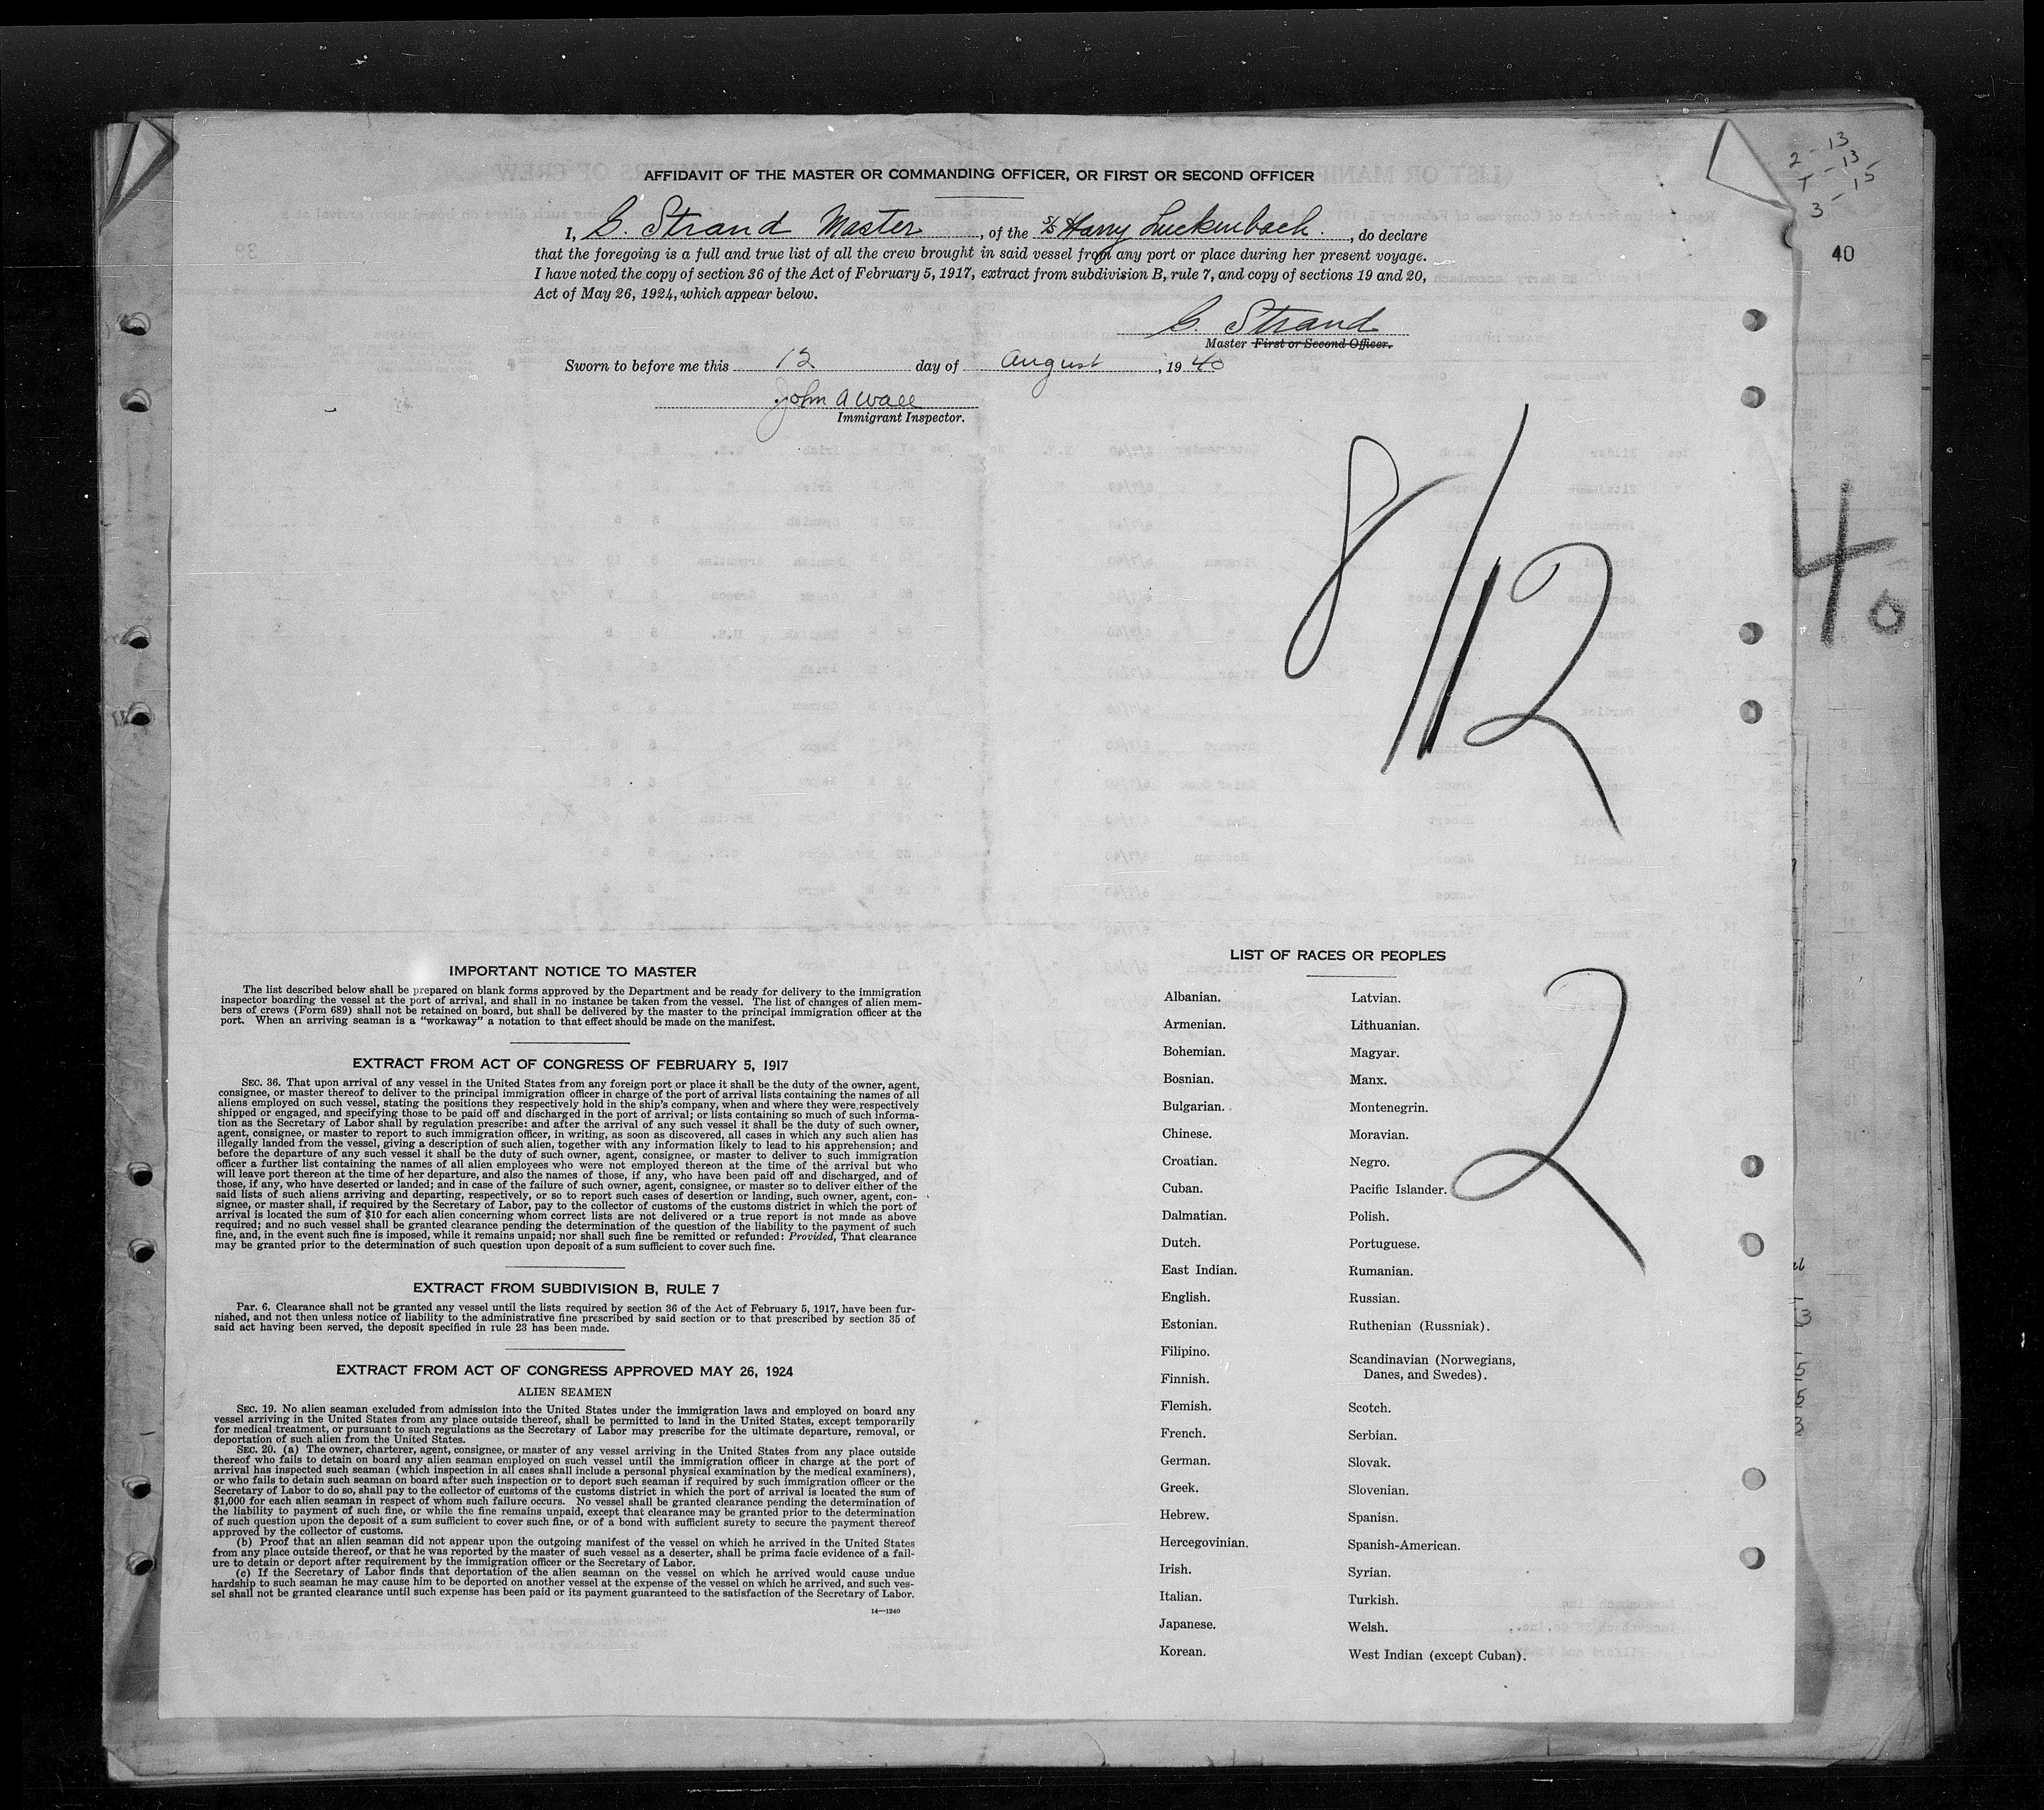 AFFIDAVIT OF THE MASTER OR COMMANDING OFFICER, OR FIRST OR SECOND OFFICER
I, G. Strand Master, of the S/S Harry Luckenbach., do declare
that the foregoing is a full and true list of all the crew brought in said vessel from any port or place during her present voyage.
I have noted the copy of section 36 of the Act of February 5, 1917, extract from subdivision B, rule 7, and copy of sections 19 and 20,
Act of May 26, 1924, which appear below.
G. Strand
Master First or Second Officer.
Sworn to before me this 12 day of August, 1940
John A Wall
Immigrant Inspector.
2 - 13
1 - 13
3 - 15
40
40
8/12
2
IMPORTANT NOTICE TO MASTER
The list described below shall be prepared on blank forms approved by the Department and be ready for delivery to the immigration
inspector boarding the vessel at the port of arrival, and shall in no instance be taken from the vessel. The list of changes of alien mem-
bers of crews (Form 689) shall not be retained on board, but shall be delivered by the master to the principal immigration officer at the
port. When an arriving seaman is a "workaway" a notation to that effect should be made on the manifest.
EXTRACT FROM ACT OF CONGRESS OF FEBRUARY 5, 1917
SEC. 36. That upon arrival of any vessel in the United States from any foreign port or place it shall be the duty of the owner, agent,
consignee, or master thereof to deliver to the principal immigration officer in charge of the port of arrival lists containing the names of all
aliens employed on such vessel, stating the positions they respectively hold in the ship's company, when and where they were respectively
shipped or engaged, and specifying those to be paid off and discharged in the port of arrival; or lists containing so much of such informa-
tion as the Secretary of Labor shall by regulation prescribe: and after the arrival of any such vessel it shall be the duty of such owner,
agent, consignee, or master to report to such immigration officer, in writing, as soon as discovered, all cases in which any such alien has
illegally landed from the vessel, giving a description of such alien, together with any information likely to lead to his apprehension; and
before the departure of any such vessel it shall be the duty of such owner, agent, consignee, or master to deliver to such immigration
officer a further list containing the names of all alien employees who were not employed thereon at the time of the arrival but who
will leave port thereon at the time of her departure, and also the names of those, if any, who have been paid off and discharged, and of
those, if any, who have deserted or landed; and in case of the failure of such owner, agent, consignee, or master so to deliver either of the
said lists of such aliens arriving and departing, respectively, or so to report such cases of desertion or landing, such owner, agent, con-
signee, or master shall, if required by the Secretary of Labor, pay to the collector of customs of the customs district in which the port of
arrival is located the sum of $10 for each alien concerning whom correct lists are not delivered or a true report is not made as above
required; and no such vessel shall be granted clearance pending the determination of the question of the liability to the payment of such
fine, and, in the event such fine is imposed, while it remains unpaid; nor shall such fine be remitted or refunded: Provided, That clearance
may be granted prior to the determination of such question upon deposit of a sum sufficient to cover such fine.
EXTRACT FROM SUBDIVISION B, RULE 7
Par. 6. Clearance shall not be granted any vessel until the lists required by section 36 of the Act of February 5, 1917, have been fur-
nished, and not then unless notice of liability to the administrative fine prescribed by said section or to that prescribed by section 35 of
said act having been served, the deposit specified in rule 23 has been made.
EXTRACT FROM ACT OF CONGRESS APPROVED MAY 26, 1924
ALIEN SEAMEN
SEC. 19. No alien seaman excluded from admission into the United States under the immigration laws and employed on board any
vessel arriving in the United States from any place outside thereof, shall be permitted to land in the United States, except temporarily
for medical treatment, or pursuant to such regulations as the Secretary of Labor may prescribe for the ultimate departure, removal, or
deportation of such alien from the United States.
SEC. 20. (a) The owner, charterer, agent, consignee, or master of any vessel arriving in the United States from any place outside
thereof who fails to detain on board any alien seaman employed on such vessel until the immigration officer in charge at the port of
arrival has inspected such seaman (which inspection in all cases shall include a personal physical examination by the medical examiners),
or who fails to detain such seaman on board after such inspection or to deport such seaman if required by such immigration officer or the
Secretary of Labor to do so, shall pay to the collector of customs of the customs district in which the port of arrival is located the sum of
$1,000 for each alien seaman in respect of whom such failure occurs. No vessel shall be granted clearance pending the determination of
the liability to payment of such fine, or while the fine remains unpaid, except that clearance may be granted prior to the determination
of such question upon the deposit of a sum sufficient to cover such fine, or of a bond with sufficient surety to secure the payment thereof
approved by the collector of customs.
(b) Proof that an alien seaman did not appear upon the outgoing manifest of the vessel on which he arrived in the United States
from any place outside thereof, or that he was reported by the master of such vessel as a deserter, shall be prima facie evidence of a fail-
ure to detain or deport after requirement by the immigration officer or the Secretary of Labor.
(c) If the Secretary of Labor finds that deportation of the alien seaman on the vessel on which he arrived would cause undue
hardship to such seaman he may cause him to be deported on another vessel at the expense of the vessel on which he arrived, and such ves-
sel shall not be granted clearance until such expense has been paid or its payment guaranteed to the satisfaction of the Secretary of Labor.
14—1240
LIST OF RACES OR PEOPLES
Albanian.
Armenian.
Bohemian.
Bosnian.
Bulgarian.
Chinese.
Croatian.
Cuban.
Dalmatian.
Dutch.
East Indian.
English.
Estonian.
Filipino.
Finnish.
Flemish.
French.
German.
Greek.
Hebrew.
Hercegovinian.
Irish.
Italian.
Japanese.
Korean.
Latvian.
Lithuanian.
Magyar.
Manx.
Montenegrin.
Moravian.
Negro.
Pacific Islander.
Polish.
Portuguese.
Rumanian.
Russian.
Ruthenian (Russniak).
Scandinavian (Norwegians,
Danes, and Swedes).
Scotch.
Serbian.
Slovak.
Slovenian.
Spanish.
Spanish-American.
Syrian.
Turkish.
Welsh.
West Indian (except Cuban).